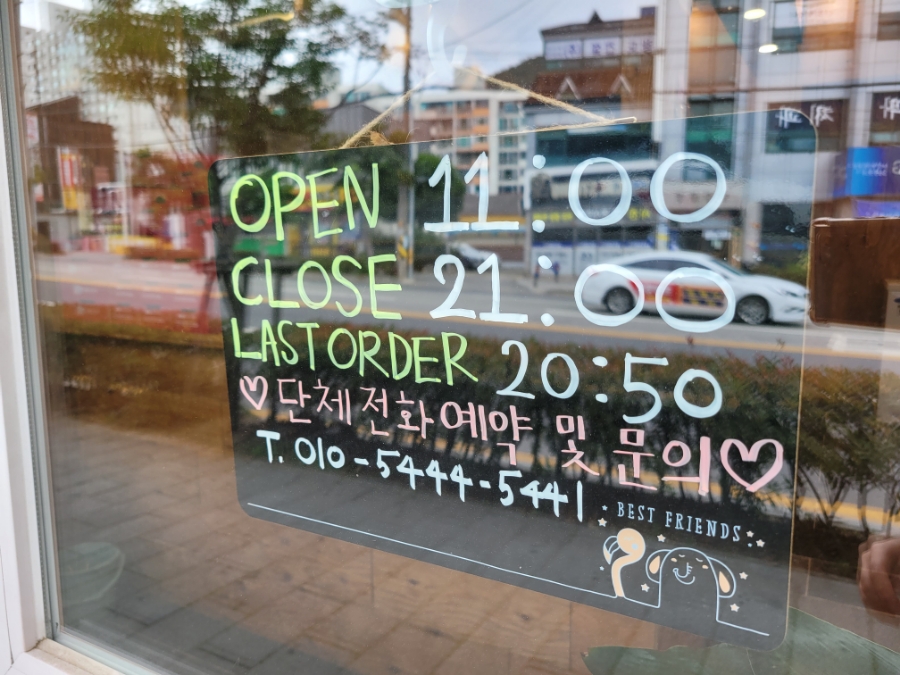 OPEN 11:00
CLOSE 21:00
LAST ORDER 20:50
♡단체 전화예약 및 문의♡
T. 010-5444-5441
BEST FRIENDS